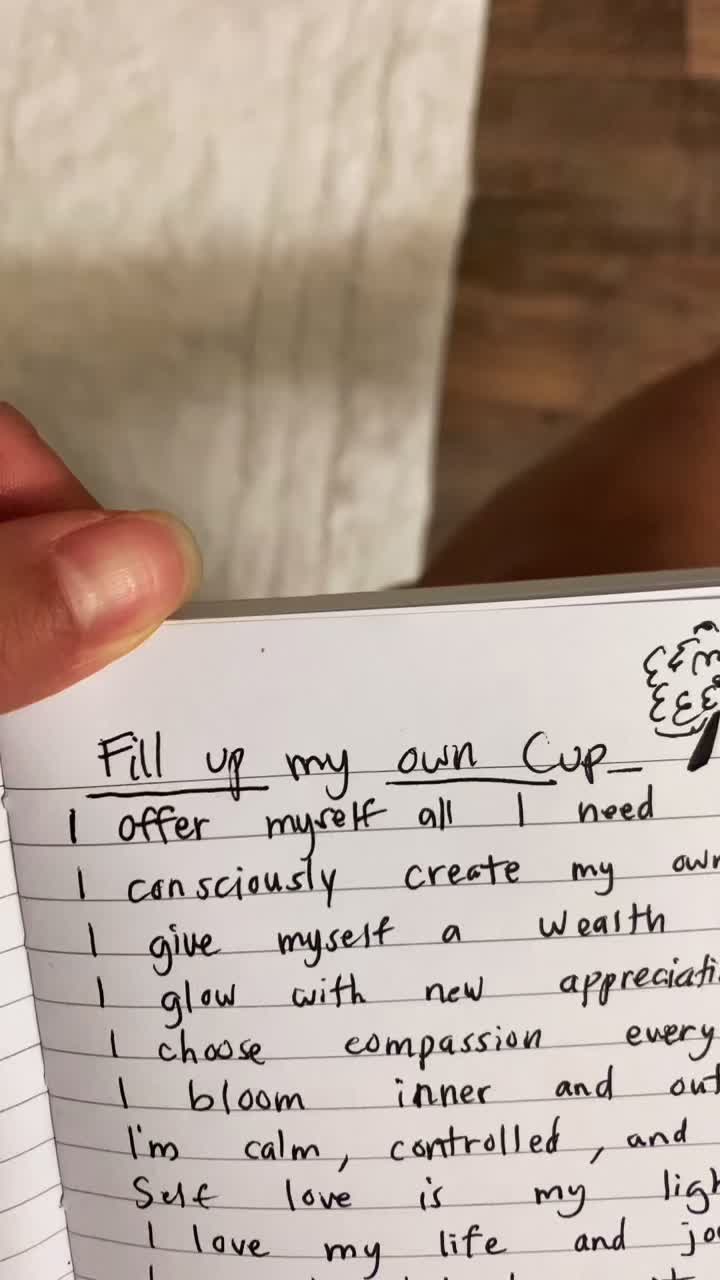 Fill up my own Cup_
I offer myself all I need
I consciously create my own
I give myself a wealth
I glow with new
I choose compassion every
I bloom inner and
I'm calm, controlled, and
Self love is my
I love my life and